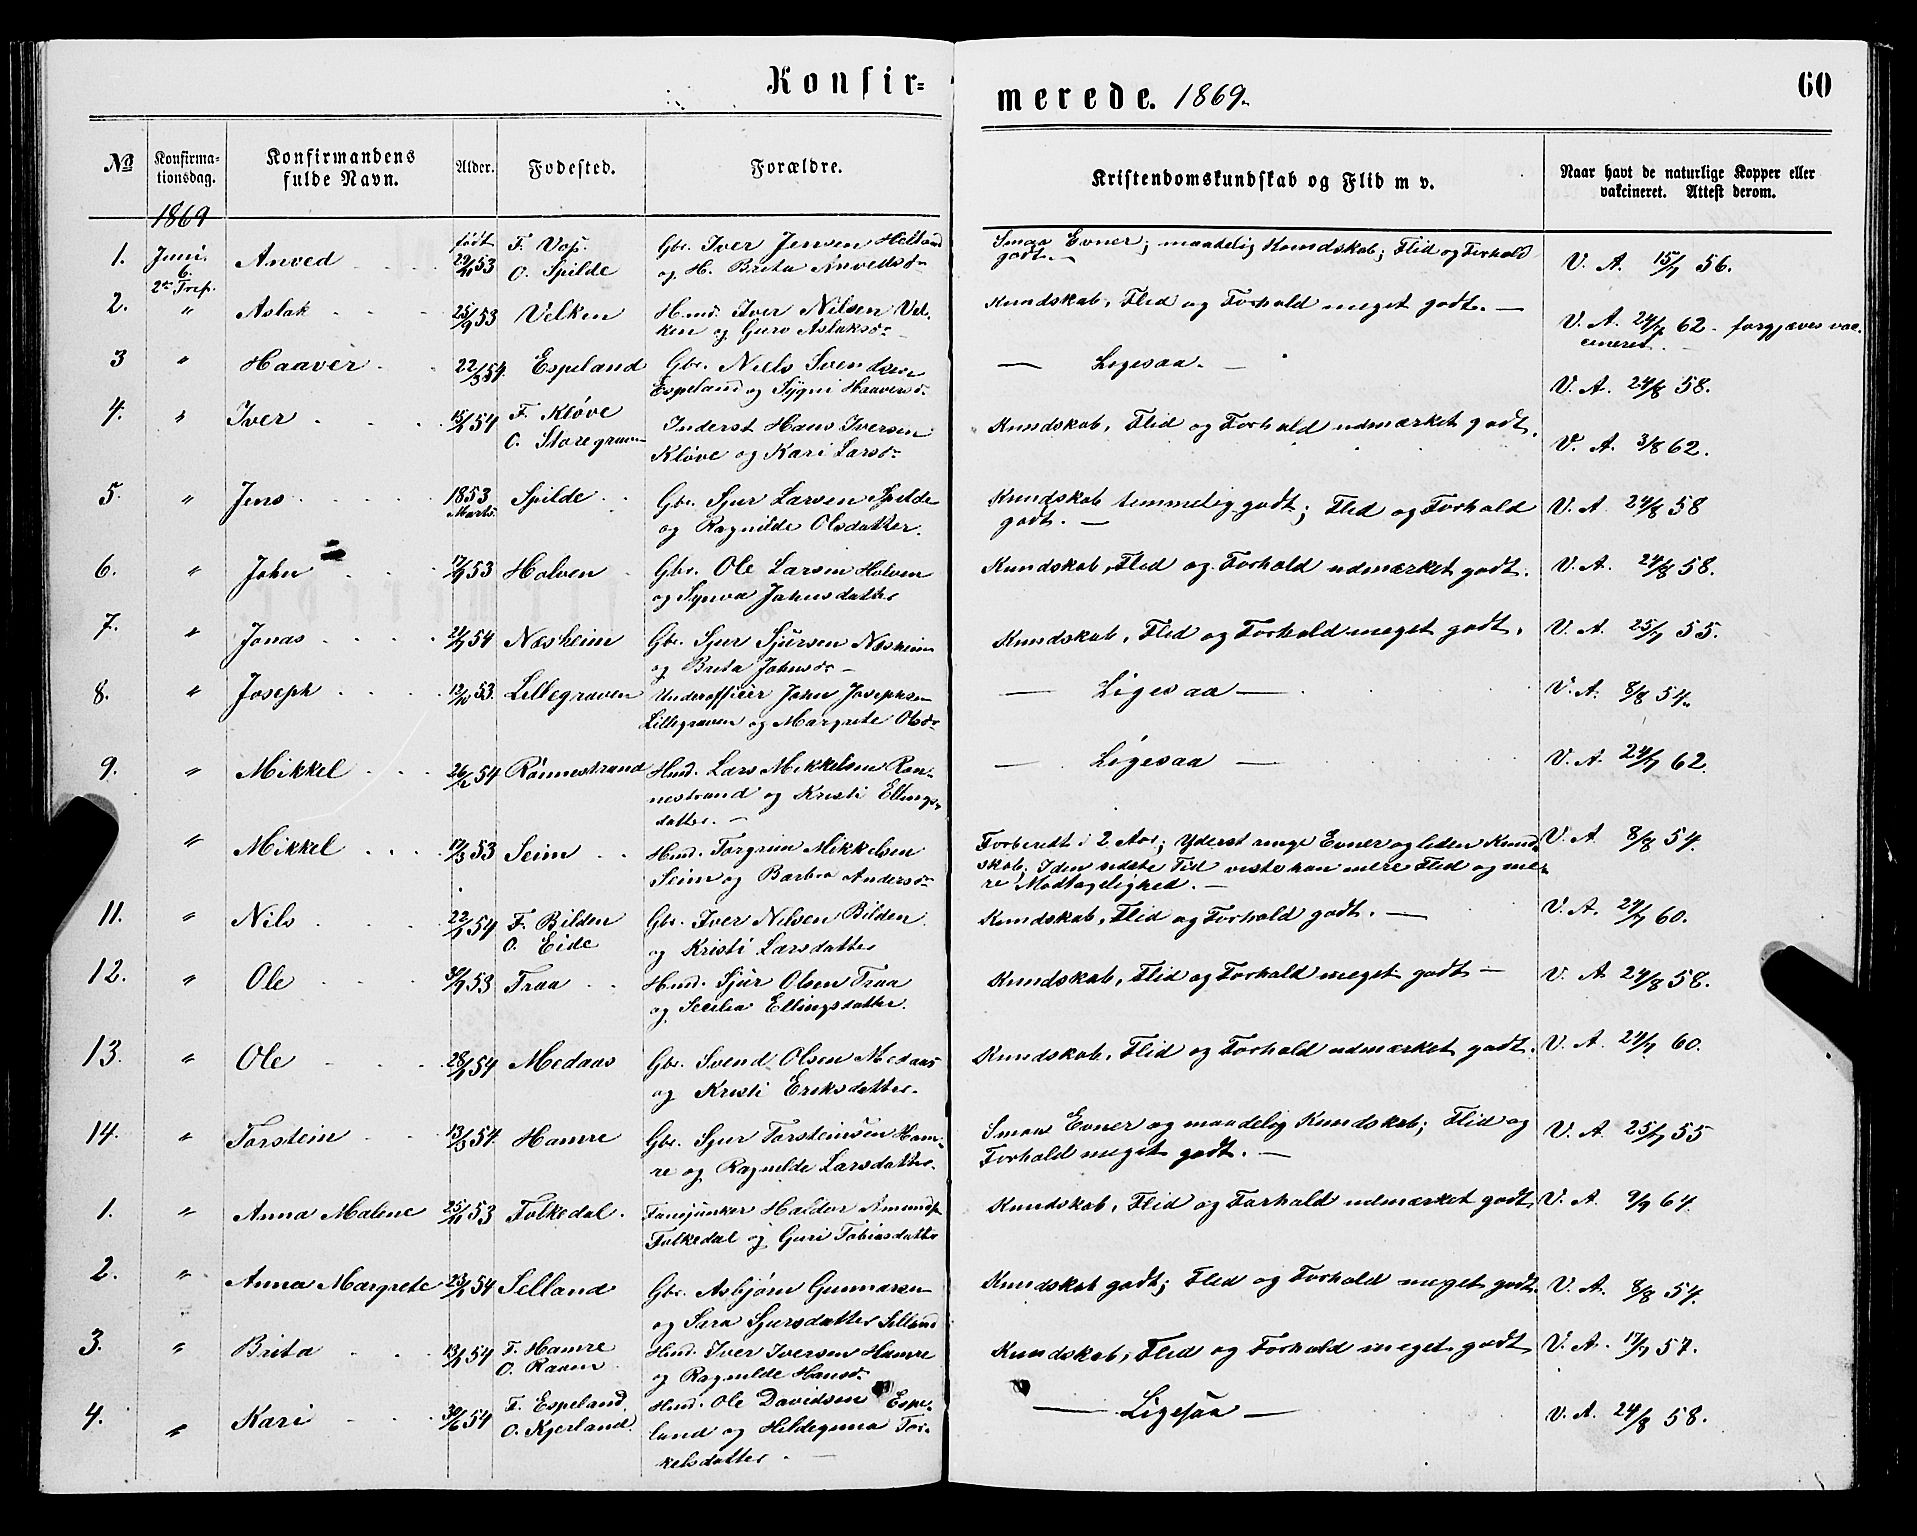 Konfir-
merede. 1869.
60
№
Konfirma-
tionsdag.
Konfirmandens
fulde Navn.
Alder.
Fødested.
Forældre.
Kristendomskundskab og Flid m v.
Naar havt de naturlige Kopper eller
vakcineret. Attest derom.
1869
1. Juni. Anved født F. Vos. Gbr. Iver Jensen Helland Smaa Evner; maadelig Kundskab; Flid og Forhold
6. 29/11 53 O. Spilde og H. Brita Anvedsd- godt. - V. A. 15/7 56.
2den Tref.
2. " Aslak 25/9 53 Velken Hmd. Iver Nilsen Vel- Kundskab, Flid og Forhold meget godt. -
ken og Guro Aslaksd- V. A. 24/7 62 - forgjæves vac-
cineret
3 " Haaver 22/3 54. Espeland Gbr. Niels Svendsen — Ligesaa. —
Espeland og Sygni Haaversd. V. A. 24/8 58.
4. " Iver 15/1 54 F. Kløve Inderst Hans Iversen Kundskab, Flid og Forhold udmærket godt.
O. Storegraven Kløve og Kari Larsd- V. A. 3/8 62.
5. " Jens 1853 Spilde Gbr. Sjur Larsen Spilde Kundskab temmelig godt; Flid og Forhold V. A 24/8 58
Marts. og Ragnilde Olsdatter. godt. —
6. " John 17/9 53 Holven Gbr. Ole Larsen Holven Kundskab, Flid og Forhold udmærket godt. V. A. 24/8 58.
og Synva Johnsdatter
7. " Jonas 21/1 54 Næsheim Gbr. Sjur Sjursen Næsheim Kundskab, Flid og Forhold meget godt. V. A. 25/7 55.
og Brita Johnsd-
8. " Joseph 12/10 53. Lillegraven Underofficer John Josephsen — Ligesaa — V. A. 8/8 54.
Lillegraven og Margrete Olsd-
9. " Mikkel 26/2 54 Rønnestrand Hmd. Lars Mikkelsen Røn- — Ligesaa — V. A. 24/7 62.
nestrand og Kristi Ellings-
datter. —
" Mikkel 17/3 53 Seim Hmd. Torgrim Mikkelsen Forberedt i 2 Aar; Yderst ringe Evner og liden Kund- V. A 8/8 54.
Seim og Barbra Andersd- skab; I den sidste Tid viste han mere Flid og me-
re Modtagelighed. —
11. " Nils 22/1 54 F. Bilden Gbr. Iver Nilsen Bilden Kundskab, Flid og Forhold godt. — V. A. 24/7 60.
O. Eide og Kristi Larsdatter
12. " Ole 30/9 53 Traa Hmd. Sjur Olsen Traa Kundskab, Flid og Forhold meget godt — V. A. 24/8 58.
og Secilia Ellingsdatter.
13. " Ole 28/1 54 Medaas Gbr. Svend Olsen Medaas Kundskab, Flid og Forhold udmærket godt. V. A. 24/7 60.
og Kristi Eriksdatter.
14. " Torstein 13/3 54. Hamre Gbr. Sjur Torsteinsen Ham- Smaa Evner og maadelig Kundskab; Flid og V. A 25/7 55
re og Ragnilde Larsdatter. Forhold meget godt. —
1. " Anna Malene 25/11 53 Folkedal. Fanejunker Haldor Amunds. Kundskab, Flid og Forhold udmærket godt V. A. 9/9 64.
Folkedal og Guri Tobiasdatter
2. " Anna Margrete 23/1 54 Selland Gbr. Asbjørn Gunnarsen Kundskab godt; Flid og Forhold meget godt. V. A. 8/8 54.
og Sara Sjursdatter Selland
3. " Brita 13/1 54 F. Hamre Hmd. Iver Iversen Hamre Kundskab, Flid og Forhold meget godt V. A. 17/7 57.
O. Raaen og Ragnilde Hansd-
4. " Kari 30/6 54 F. Espeland Hmd. Ole Davidsen Espe- — Ligesaa — V. A. 24/8 58.
O. Kjerland land og Hildegunna Tor-
kelsdatter —